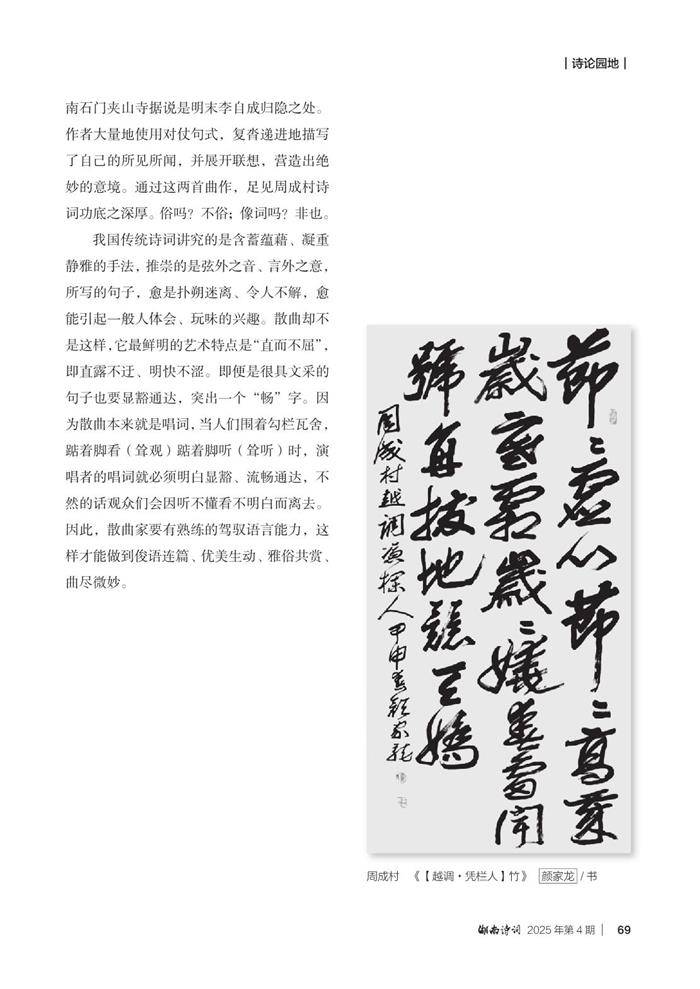 |诗论园地|
南石门夹山寺据说是明末李自成归隐之处。
作者大量地使用对仗句式，复沓递进地描写
了自己的所见所闻，并展开联想，营造出绝
妙的意境。通过这两首曲作，足见周成村诗
词功底之深厚。俗吗？不俗；像词吗？非也。
我国传统诗词讲究的是含蓄蕴藉、凝重
静雅的手法，推崇的是弦外之音、言外之意，
所写的句子，愈是扑朔迷离、令人不解，愈
能引起一般人体会、玩味的兴趣。散曲却不
是这样，它最鲜明的艺术特点是“直而不屈”，
即直露不迂、明快不涩。即便是很具文采的
句子也要显豁通达，突出一个“畅”字。因
为散曲本来就是唱词，当人们围着勾栏瓦舍，
踮着脚看（耸观）踮着脚听（耸听）时，演
唱者的唱词就必须明白显豁、流畅通达，不
然的话观众们会因听不懂看不明白而离去。
因此，散曲家要有熟练的驾驭语言能力，这
样才能做到俊语连篇、优美生动、雅俗共赏、
曲尽微妙。
節〻虛心節〻高葉
寒霜歲〻春雷聞
號拔地競天嬌
周成村越調憑人甲申春顏家龍
周成村 《【越调·凭栏人】竹》 颜家龙/书
湖南诗词 2025年第4期| 69